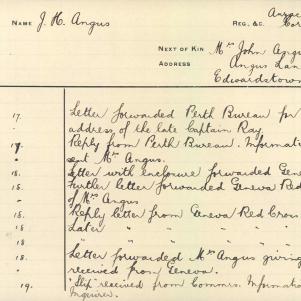 NAME J. H. Angus
REG. &C.
NEXT OF KIN Mrs John Angus
ADDRESS Angus Lan
Edwardstow
17. Letter forwarded Perth Bureau for
address of the late Captain Ray.
17. Reply from Perth Bureau. Informati
sent Mrs Angus.
18. Letter with enclosure forwarded Gene
18. Further letter forwarded Geneva Red
" of Mrs Angus
18. Reply letter from Geneva Red Cross
18 Later " " "
18. Letter forwarded Mrs Angus giving
" received from Geneva.
19. "Slip" received from Commrs. Informatio
Inquirer.